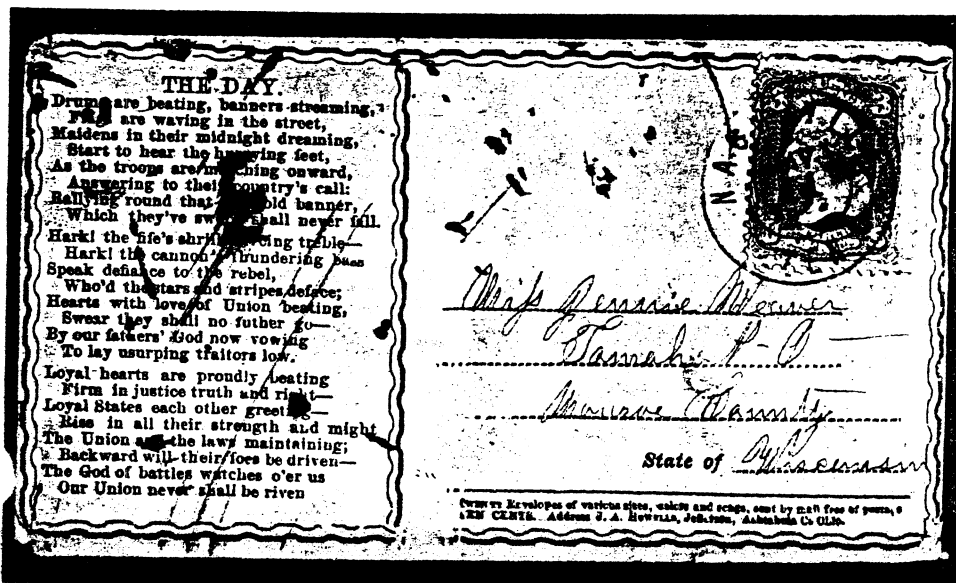 THE DAY.
Drums are beating, banners streaming,
Flags are waving in the street,
Maidens in their midnight dreaming,
Start to hear the hurrying feet,
As the troops are marching onward,
Answering to their country's call:
Rallying round that old banner,
Which they've sworn shall never fall.
Hark! the fife's shrill treble—
Hark! the cannon's thundering bass
Speak defiance to the rebel,
Who'd the stars and stripes deface;
Hearts with love of Union beating,
Swear they shall no futher go—
By our fathers' God now vowing
To lay usurping traitors low.
Loyal hearts are proudly beating
Firm in justice truth and right—
Loyal States each other greeting—
Rise in all their strength and might
The Union and the laws maintaining;
Backward will their foes be driven—
The God of battles watches o'er us
Our Union never shall be riven
N.A.
Miss Jennie Weaver
Tomah P-O
Monroe County
State of Wisconsin
Twenty Envelopes of various sizes, colors and songs, sent by mail free of
TEN CENTS. Address J. A. Howells, Jefferson, Ashtabula Co Ohio.